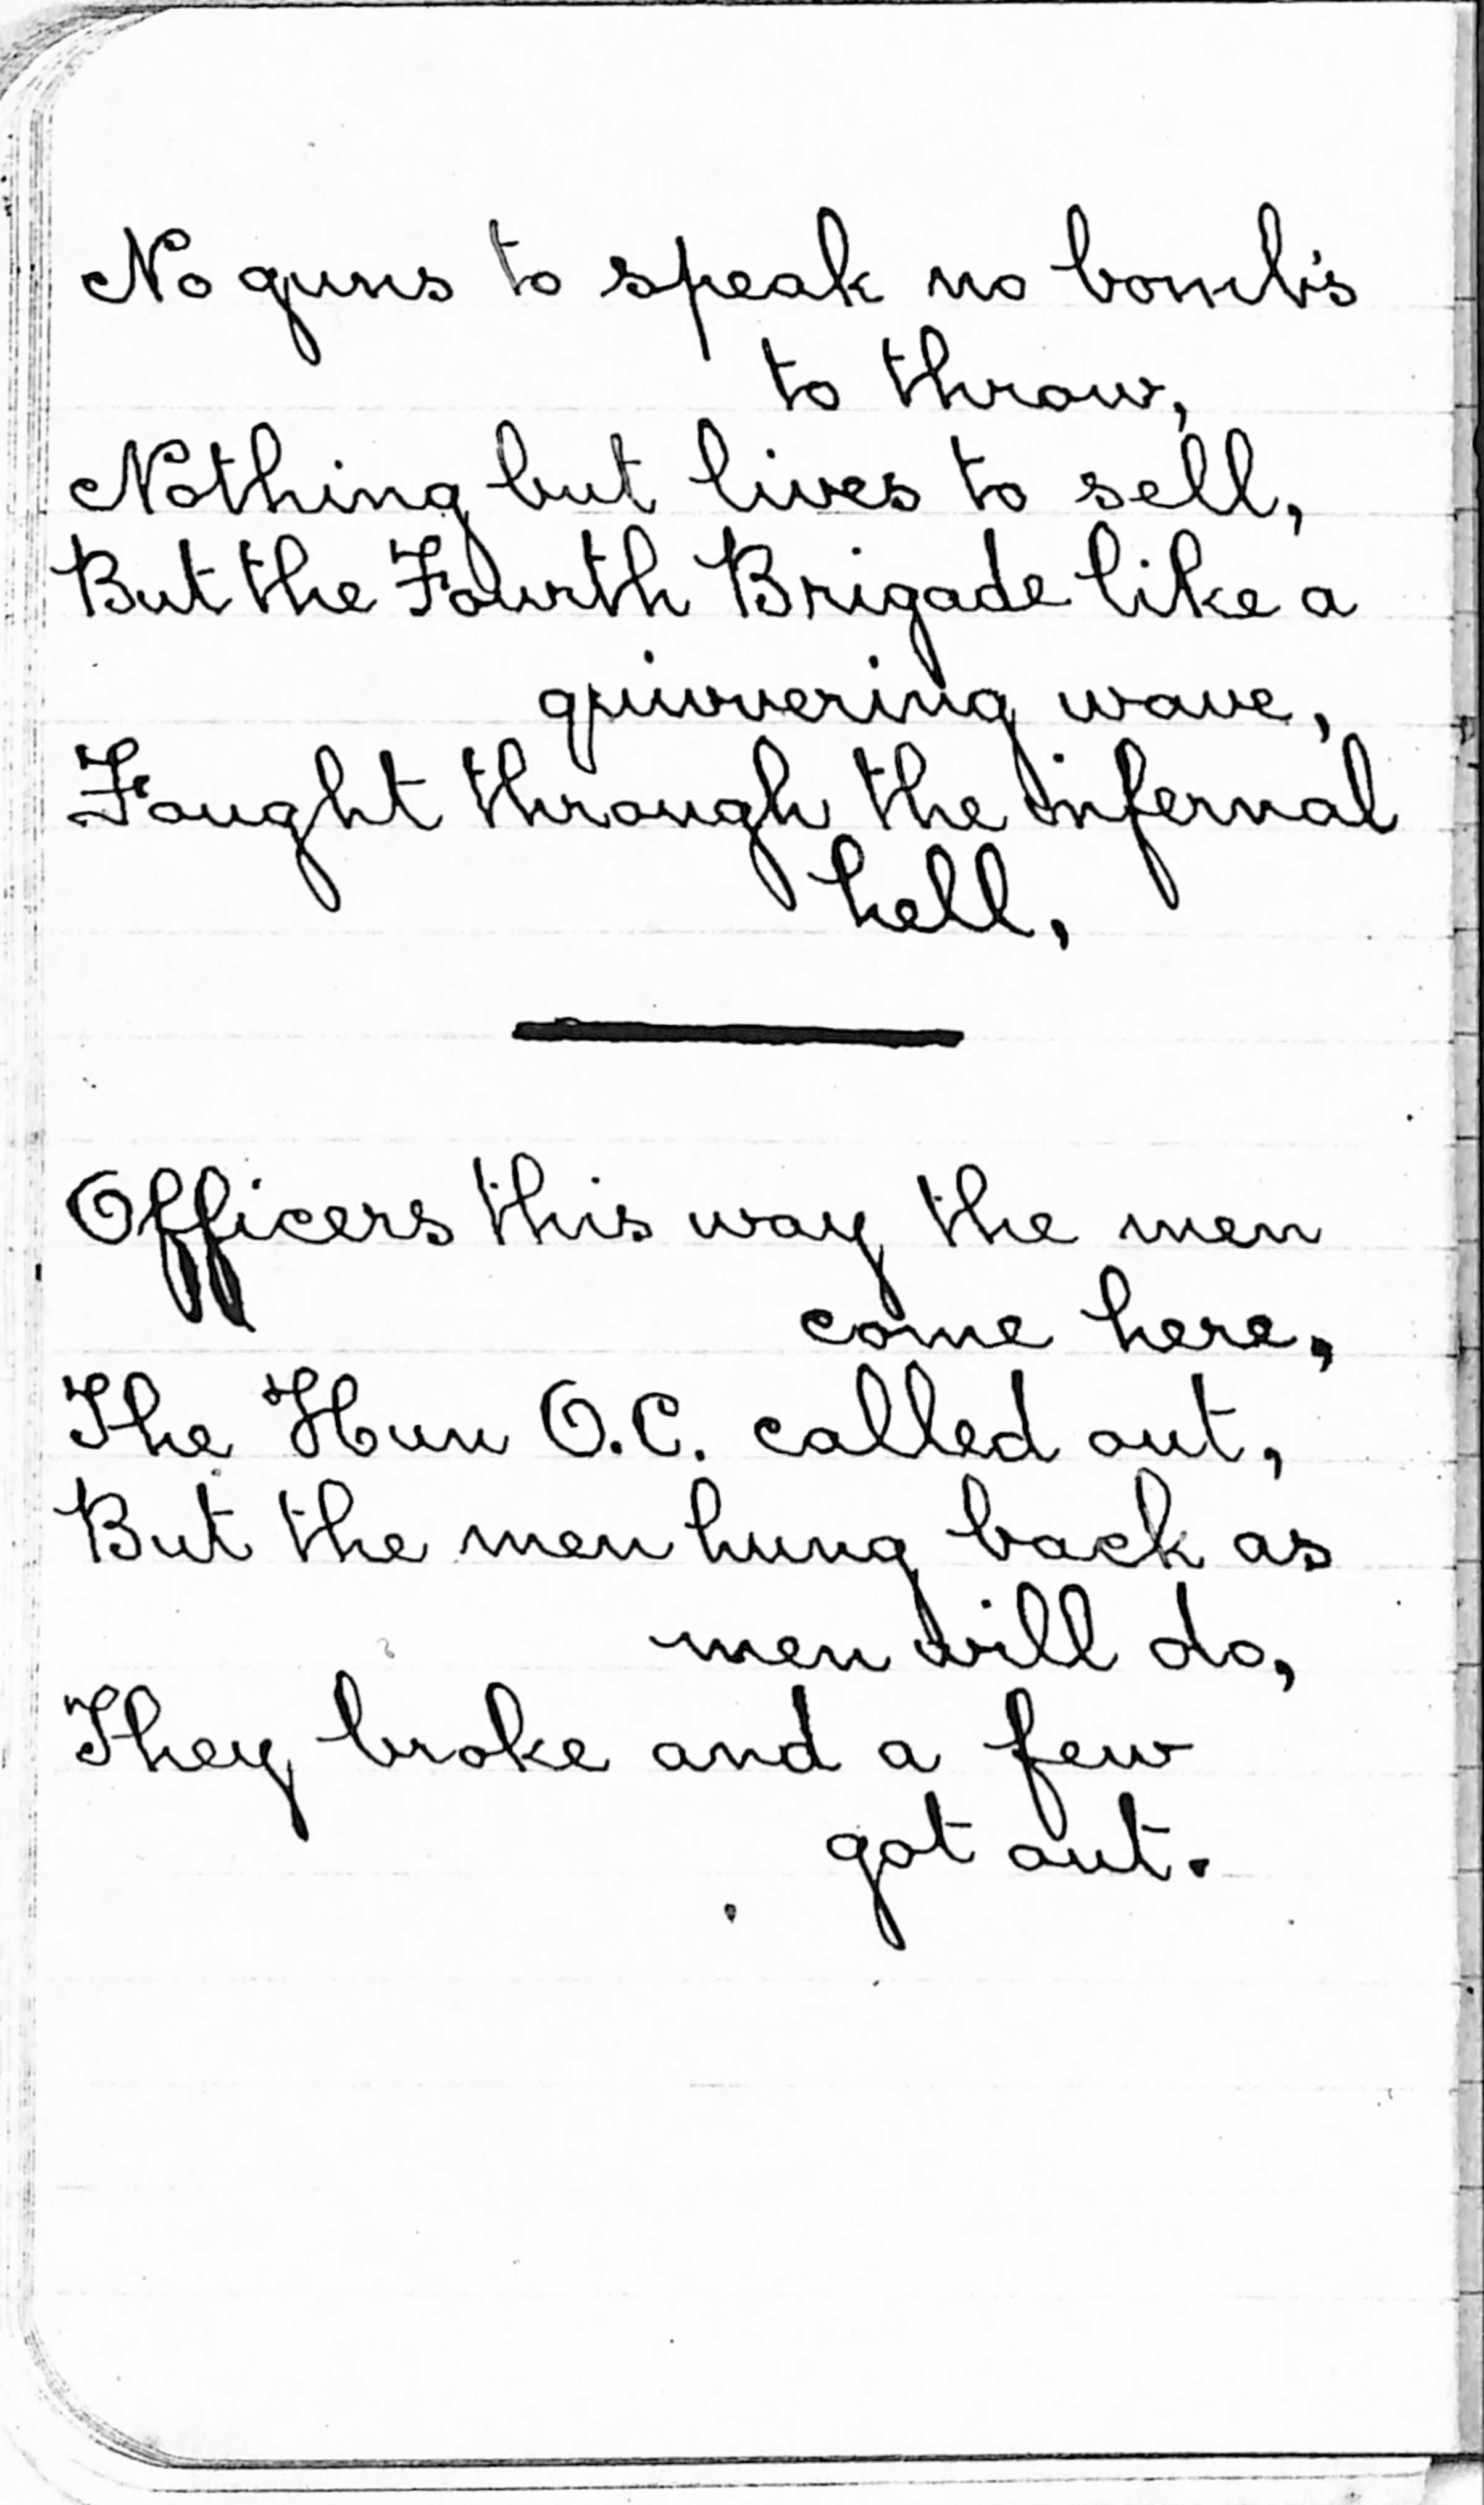 No guns to speak no bomb's
to throw,
Nothing but lives to sell,
But the Fourth Brigade like a
quivvering wave,
Fought through the infernal
hell,
Officers this way the men
come here,
The Hun O.C. called out,
But the men hung back as
men will do,
They broke and a few
got out.